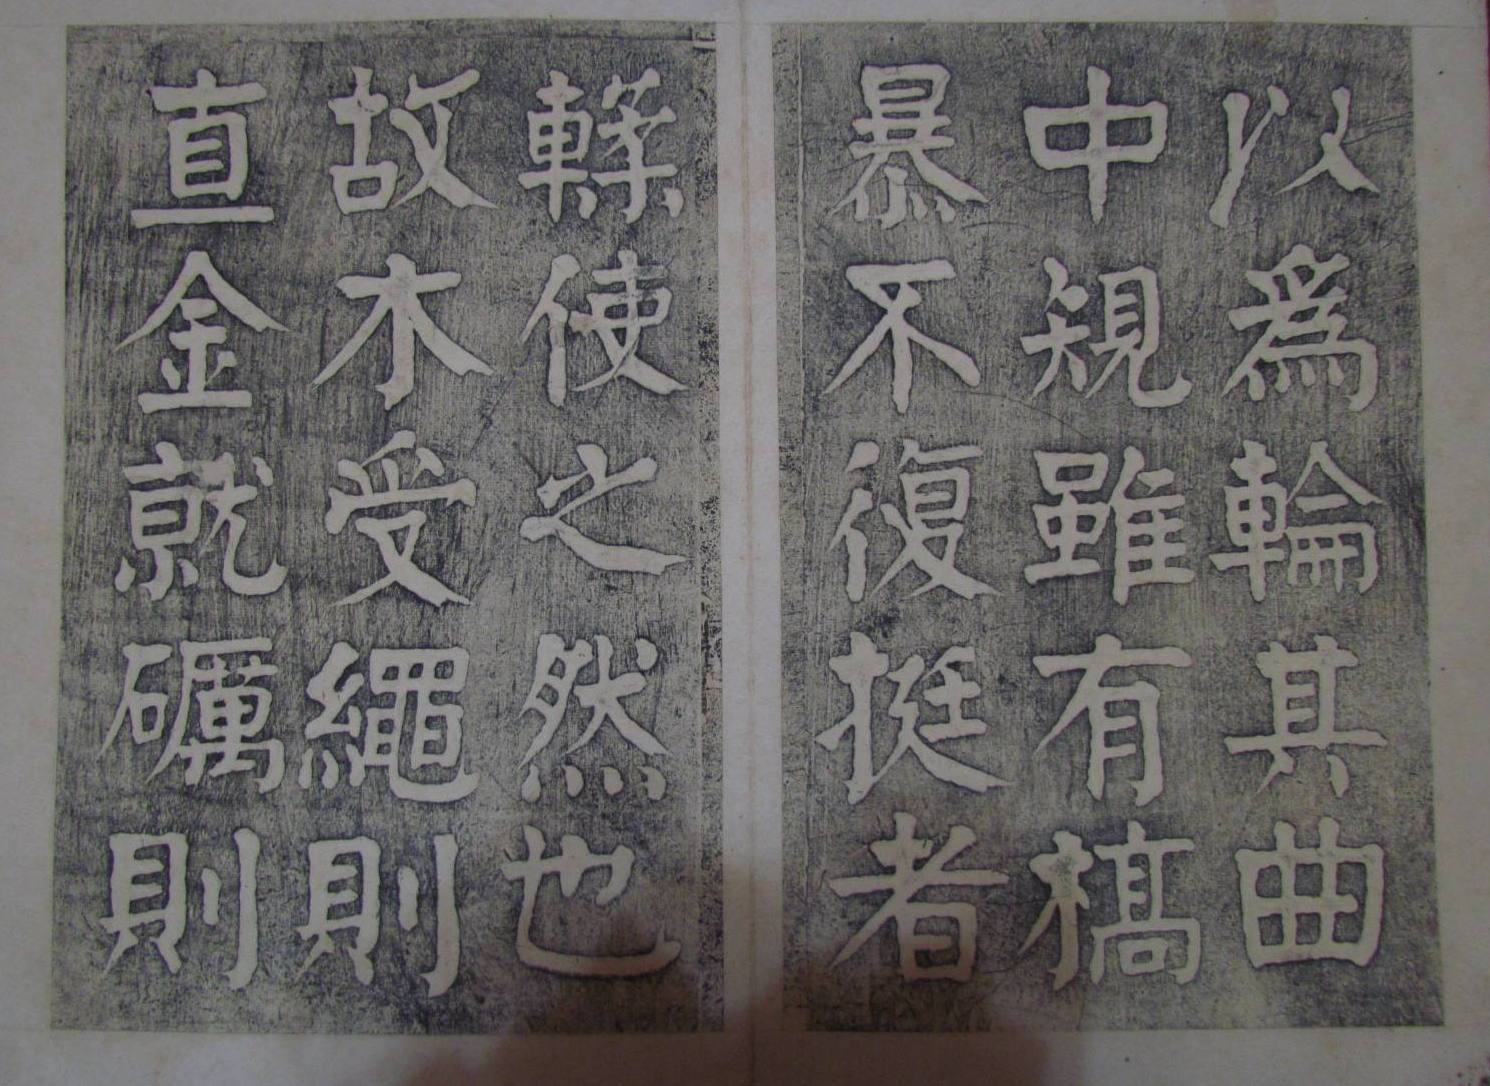 以爲輪其曲
中規雖有槁
暴不復挺者
輮使之然也
故木受繩則
直金就礪則